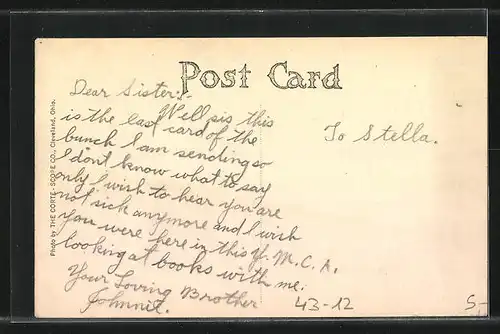 Post Card
Dear Sister:-
Well sis this
is the last card of the
bunch I am sending so
I don't know what to say
only I wish to hear you are
not sick anymore and I wish
you were here in this Y.M.C.A.
looking at books with me.
Your Loving Brother
Johnnie.
To Stella.
43-12
5-
Photo by THE CORTE-SCOPE CO., Cleveland, Ohio.